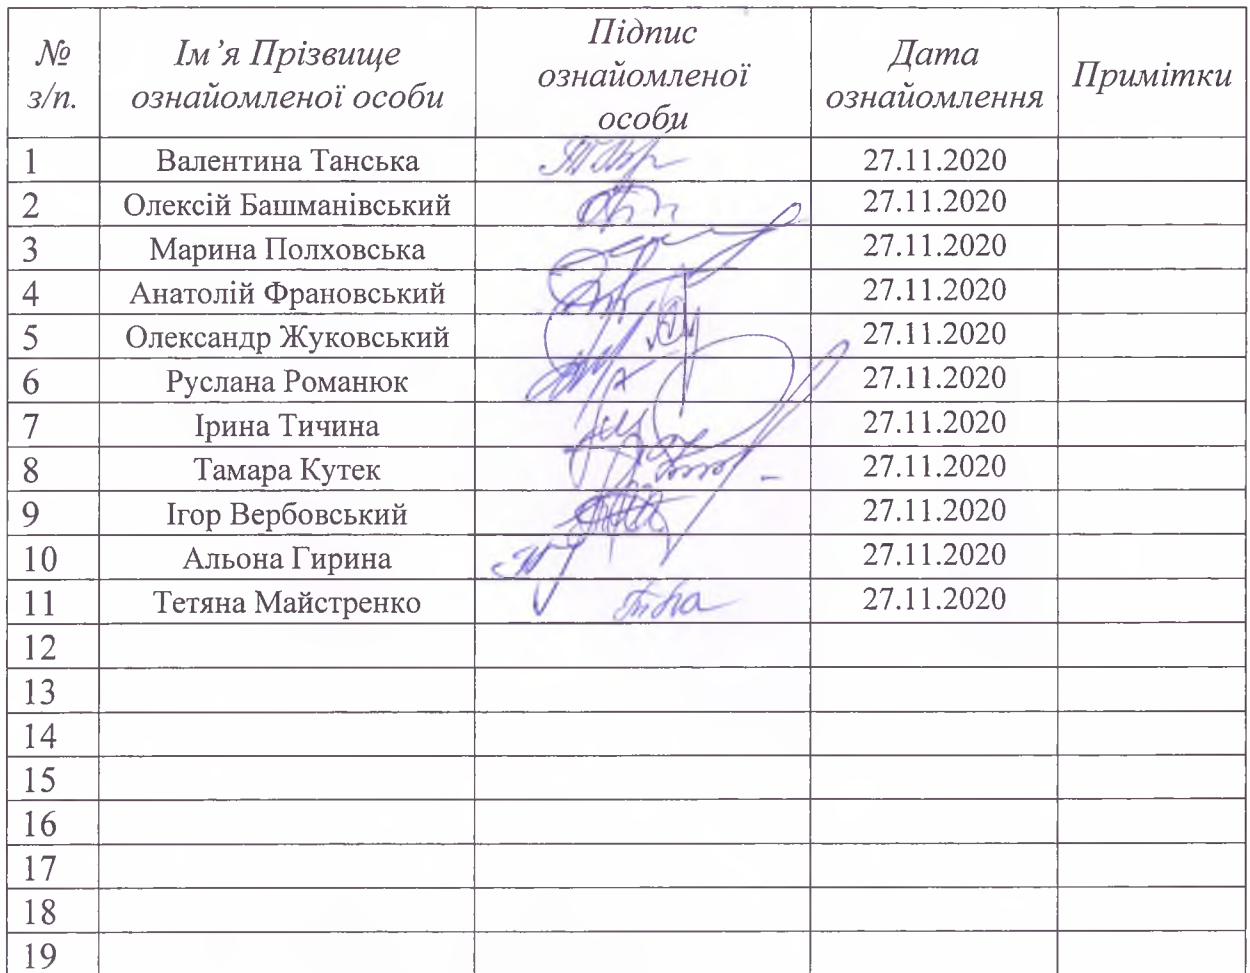 № з/п. Ім’я Прізвище ознайомленої особи Підпис ознайомленої особи Дата ознайомлення Примітки
1 Валентина Танська 27.11.2020
2 Олексій Башманівський 27.11.2020
3 Марина Полховська 27.11.2020
4 Анатолій Франовський 27.11.2020
5 Олександр Жуковський 27.11.2020
6 Руслана Романюк 27.11.2020
7 Ірина Тичина 27.11.2020
8 Тамара Кутек 27.11.2020
9 Ігор Вербовський 27.11.2020
10 Альона Гирина 27.11.2020
11 Тетяна Майстренко 27.11.2020
12
13
14
15
16
17
18
19